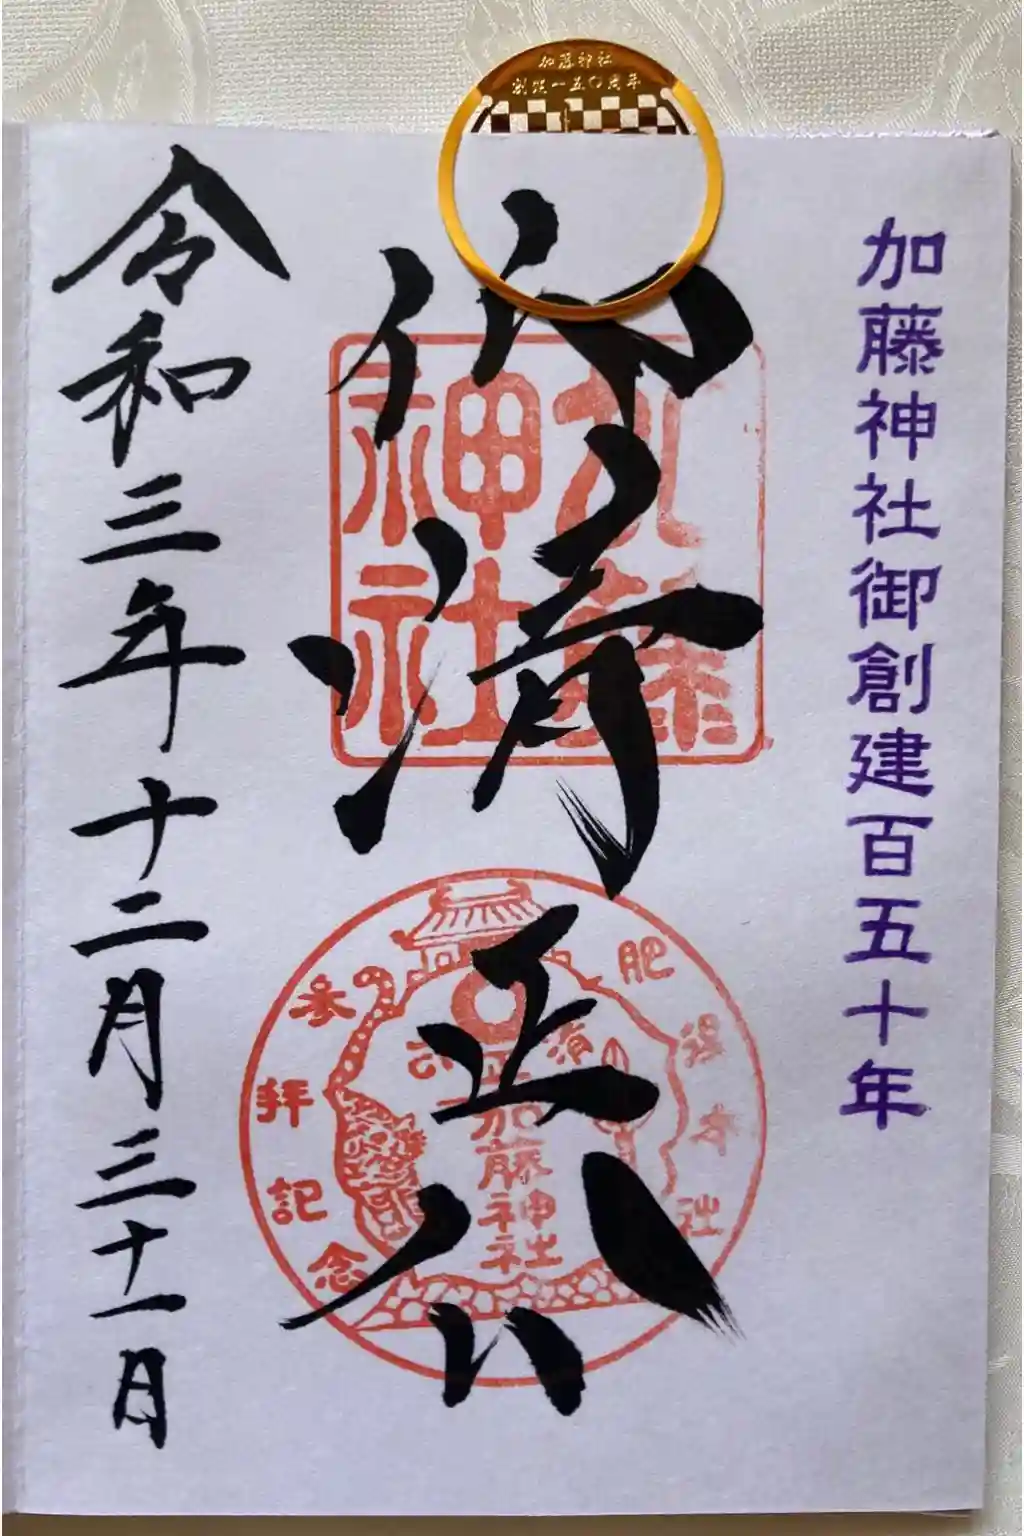 加藤神社
創建一五〇周年
加藤神社御創建百五十年
仰清正公
令和三年十二月三十一日
加藤神社
肥後本社
参拝記念
加藤神社